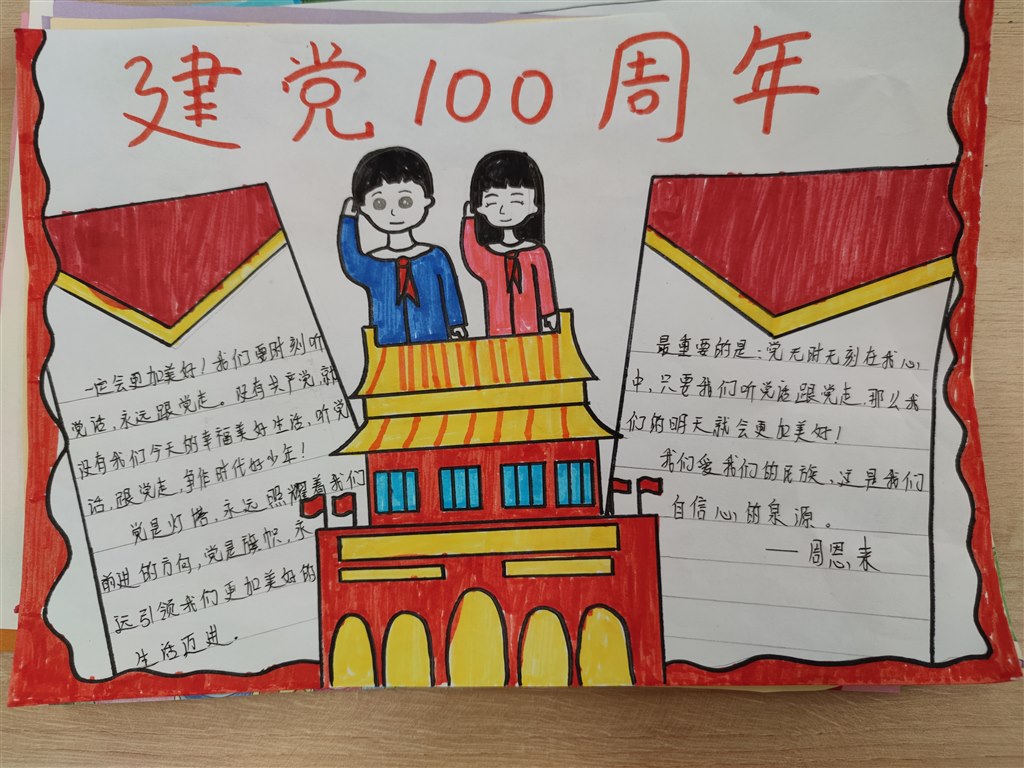 建党100周年
一定会更加美好！我们要时刻听
党话，永远跟党走。没有共产党，就
没有我们今天的幸福美好生活，听党
话，跟党走，争作时代好少年！
党是灯塔，永远照耀着我们
前进的方向，党是旗帜，永
远引领我们更加美好的
生活迈进。
最重要的是：党无时无刻在我心
中，只要我们听党话，跟党走，那么我
们的明天就会更加美好！
我们爱我们的民族，这是我们
自信心的泉源。
——周恩来